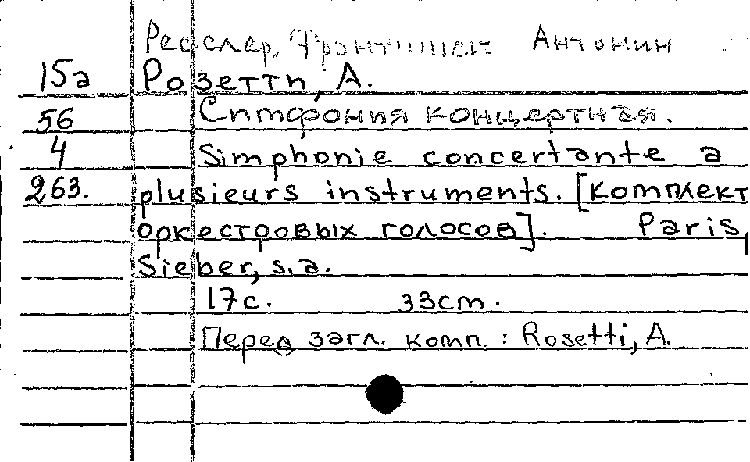 Ресслер, Франтишек Антонин
15а Розетти, А.
56 Симфония концертная.
4 Simphonie concertante a
263. plusieurs instruments. [Комплект
оркестровых голосов]. Paris,
Sieber, s.a.
17с. 33cm.
Перед загл. комп.: Rosetti, A.